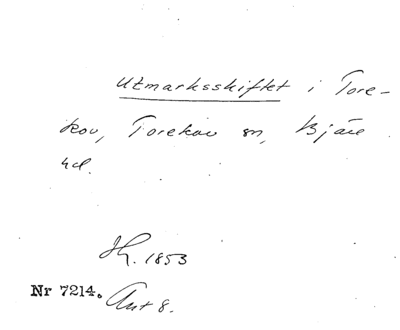 Utmarksskiftet i Tore-
kov, Torekov sn, Bjäre
hd.
1853
Nr 7214.
Ant 8.